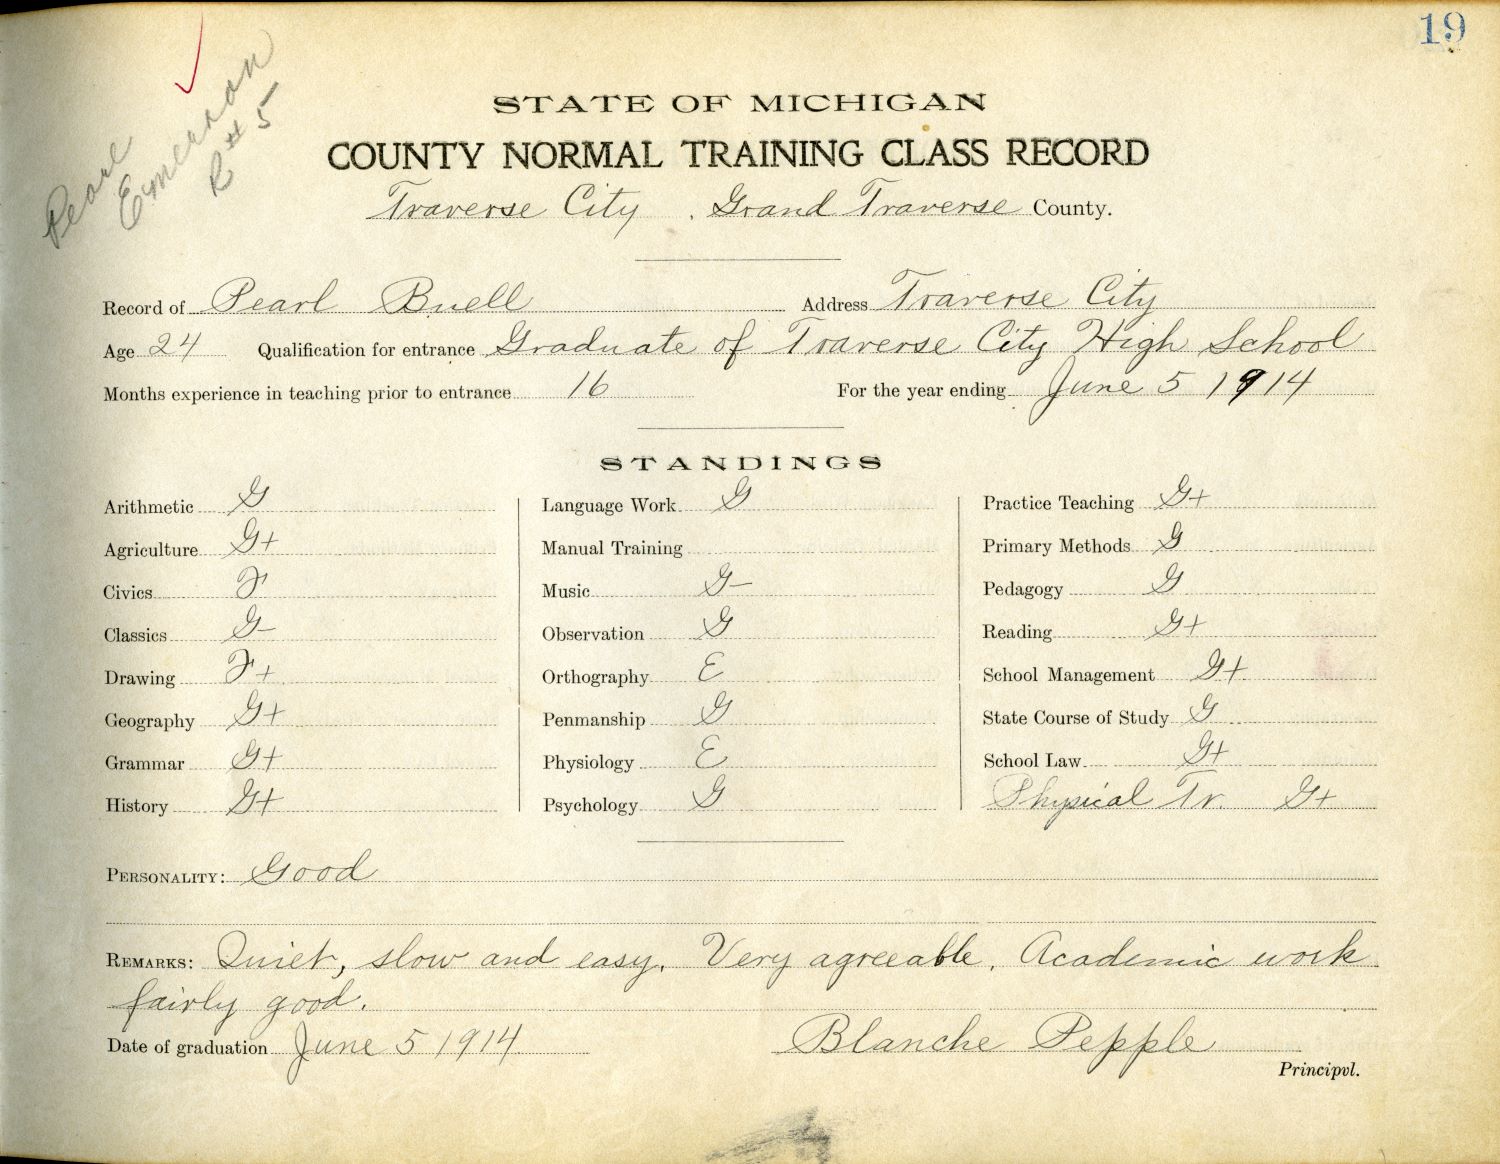 19
Pearl
Emerson
R #5
STATE OF MICHIGAN
COUNTY NORMAL TRAINING CLASS RECORD
Traverse City, Grand Traverse County.
Record of Pearl Buell Address Traverse City
Age 24 Qualification for entrance Graduate of Traverse City High School
Months experience in teaching prior to entrance 16 For the year ending June 5 1914
STANDINGS
Arithmetic G
Agriculture G+
Civics F
Classics G-
Drawing F+
Geography G+
Grammar G+
History G+
Language Work G
Manual Training
Music G-
Observation G
Orthography E
Penmanship G
Physiology E
Psychology G
Practice Teaching G+
Primary Methods G
Pedagogy G
Reading G+
School Management G+
State Course of Study G
School Law G+
Physical Tr. G+
PERSONALITY: Good
REMARKS: Quiet, slow and easy. Very agreeable. Academic work
fairly good.
Date of graduation June 5 1914 Blanche Pepple
Principal.